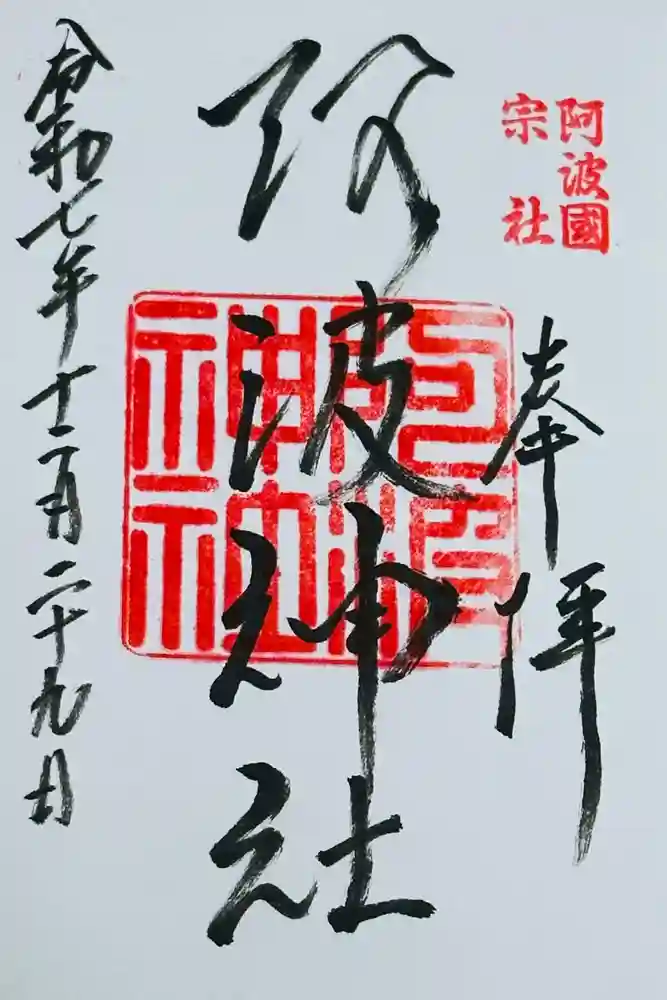 阿波國
宗社
奉拝
阿波神社
阿波
神社
令和七年十二月二十九日